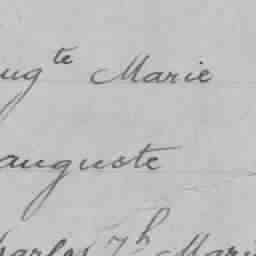 ugte Marie
auguste
harles Jh Mari